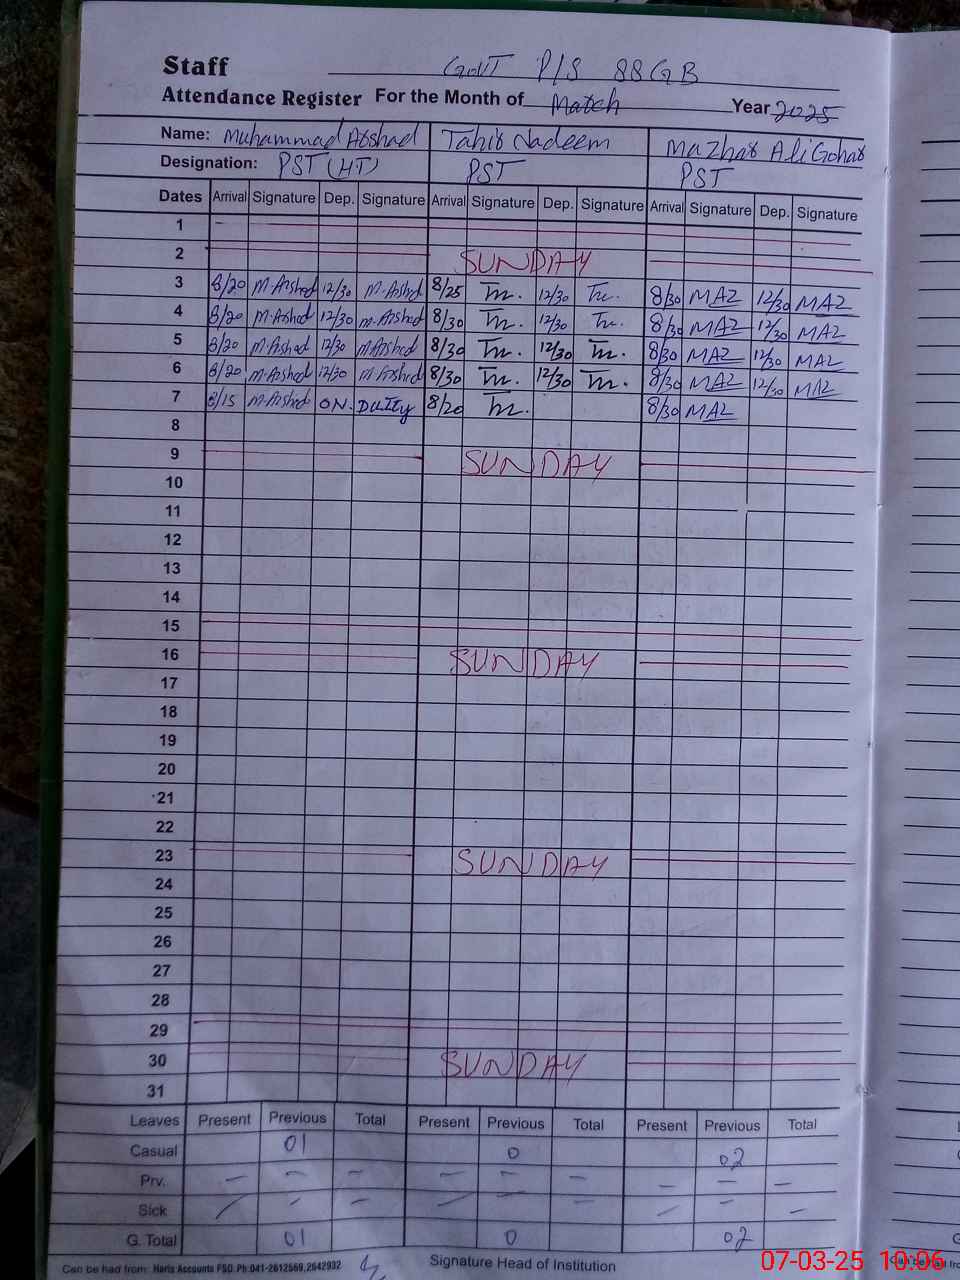 Staff GovT P/S 88GB
Attendance Register For the Month of March Year 2025
Name: Muhammad Arshad Tahir Nadeem Mazhar Ali Gohar
Designation: PST (HT) PST PST
Dates Arrival Signature Dep. Signature Arrival Signature Dep. Signature Arrival Signature Dep. Signature
1
2 SUNDAY
3 8/20 M.Arshad 12/30 M.Arshad 8/25 Tn. 12/30 Tn. 8/30 MAZ 12/30 MAZ
4 8/20 M.Arshad 12/30 M.Arshad 8/30 Tn. 12/30 Tn. 8/30 MAZ 12/30 MAZ
5 8/20 M.Arshad 12/30 M.Arshad 8/30 Tn. 12/30 Tn. 8/30 MAZ 12/30 MAZ
6 8/20 M.Arshad 12/30 M.Arshad 8/30 Tn. 12/30 Tn. 8/30 MAZ 12/30 MAZ
7 8/15 M.Arshad ON. DUTY 8/20 Tn. 8/30 MAZ
8
9 SUNDAY
10
11
12
13
14
15
16 SUNDAY
17
18
19
20
21
22
23 SUNDAY
24
25
26
27
28
29
30 SUNDAY
31
Leaves Present Previous Total Present Previous Total Present Previous Total
Casual 01 0 02
Prv. — — — — — — — —
Sick — — — — — — — —
G. Total 01 0 02
Can be had from: Haris Accounts FSD. Ph:041-2612569,2642932 Signature Head of Institution
07-03-25 10:06